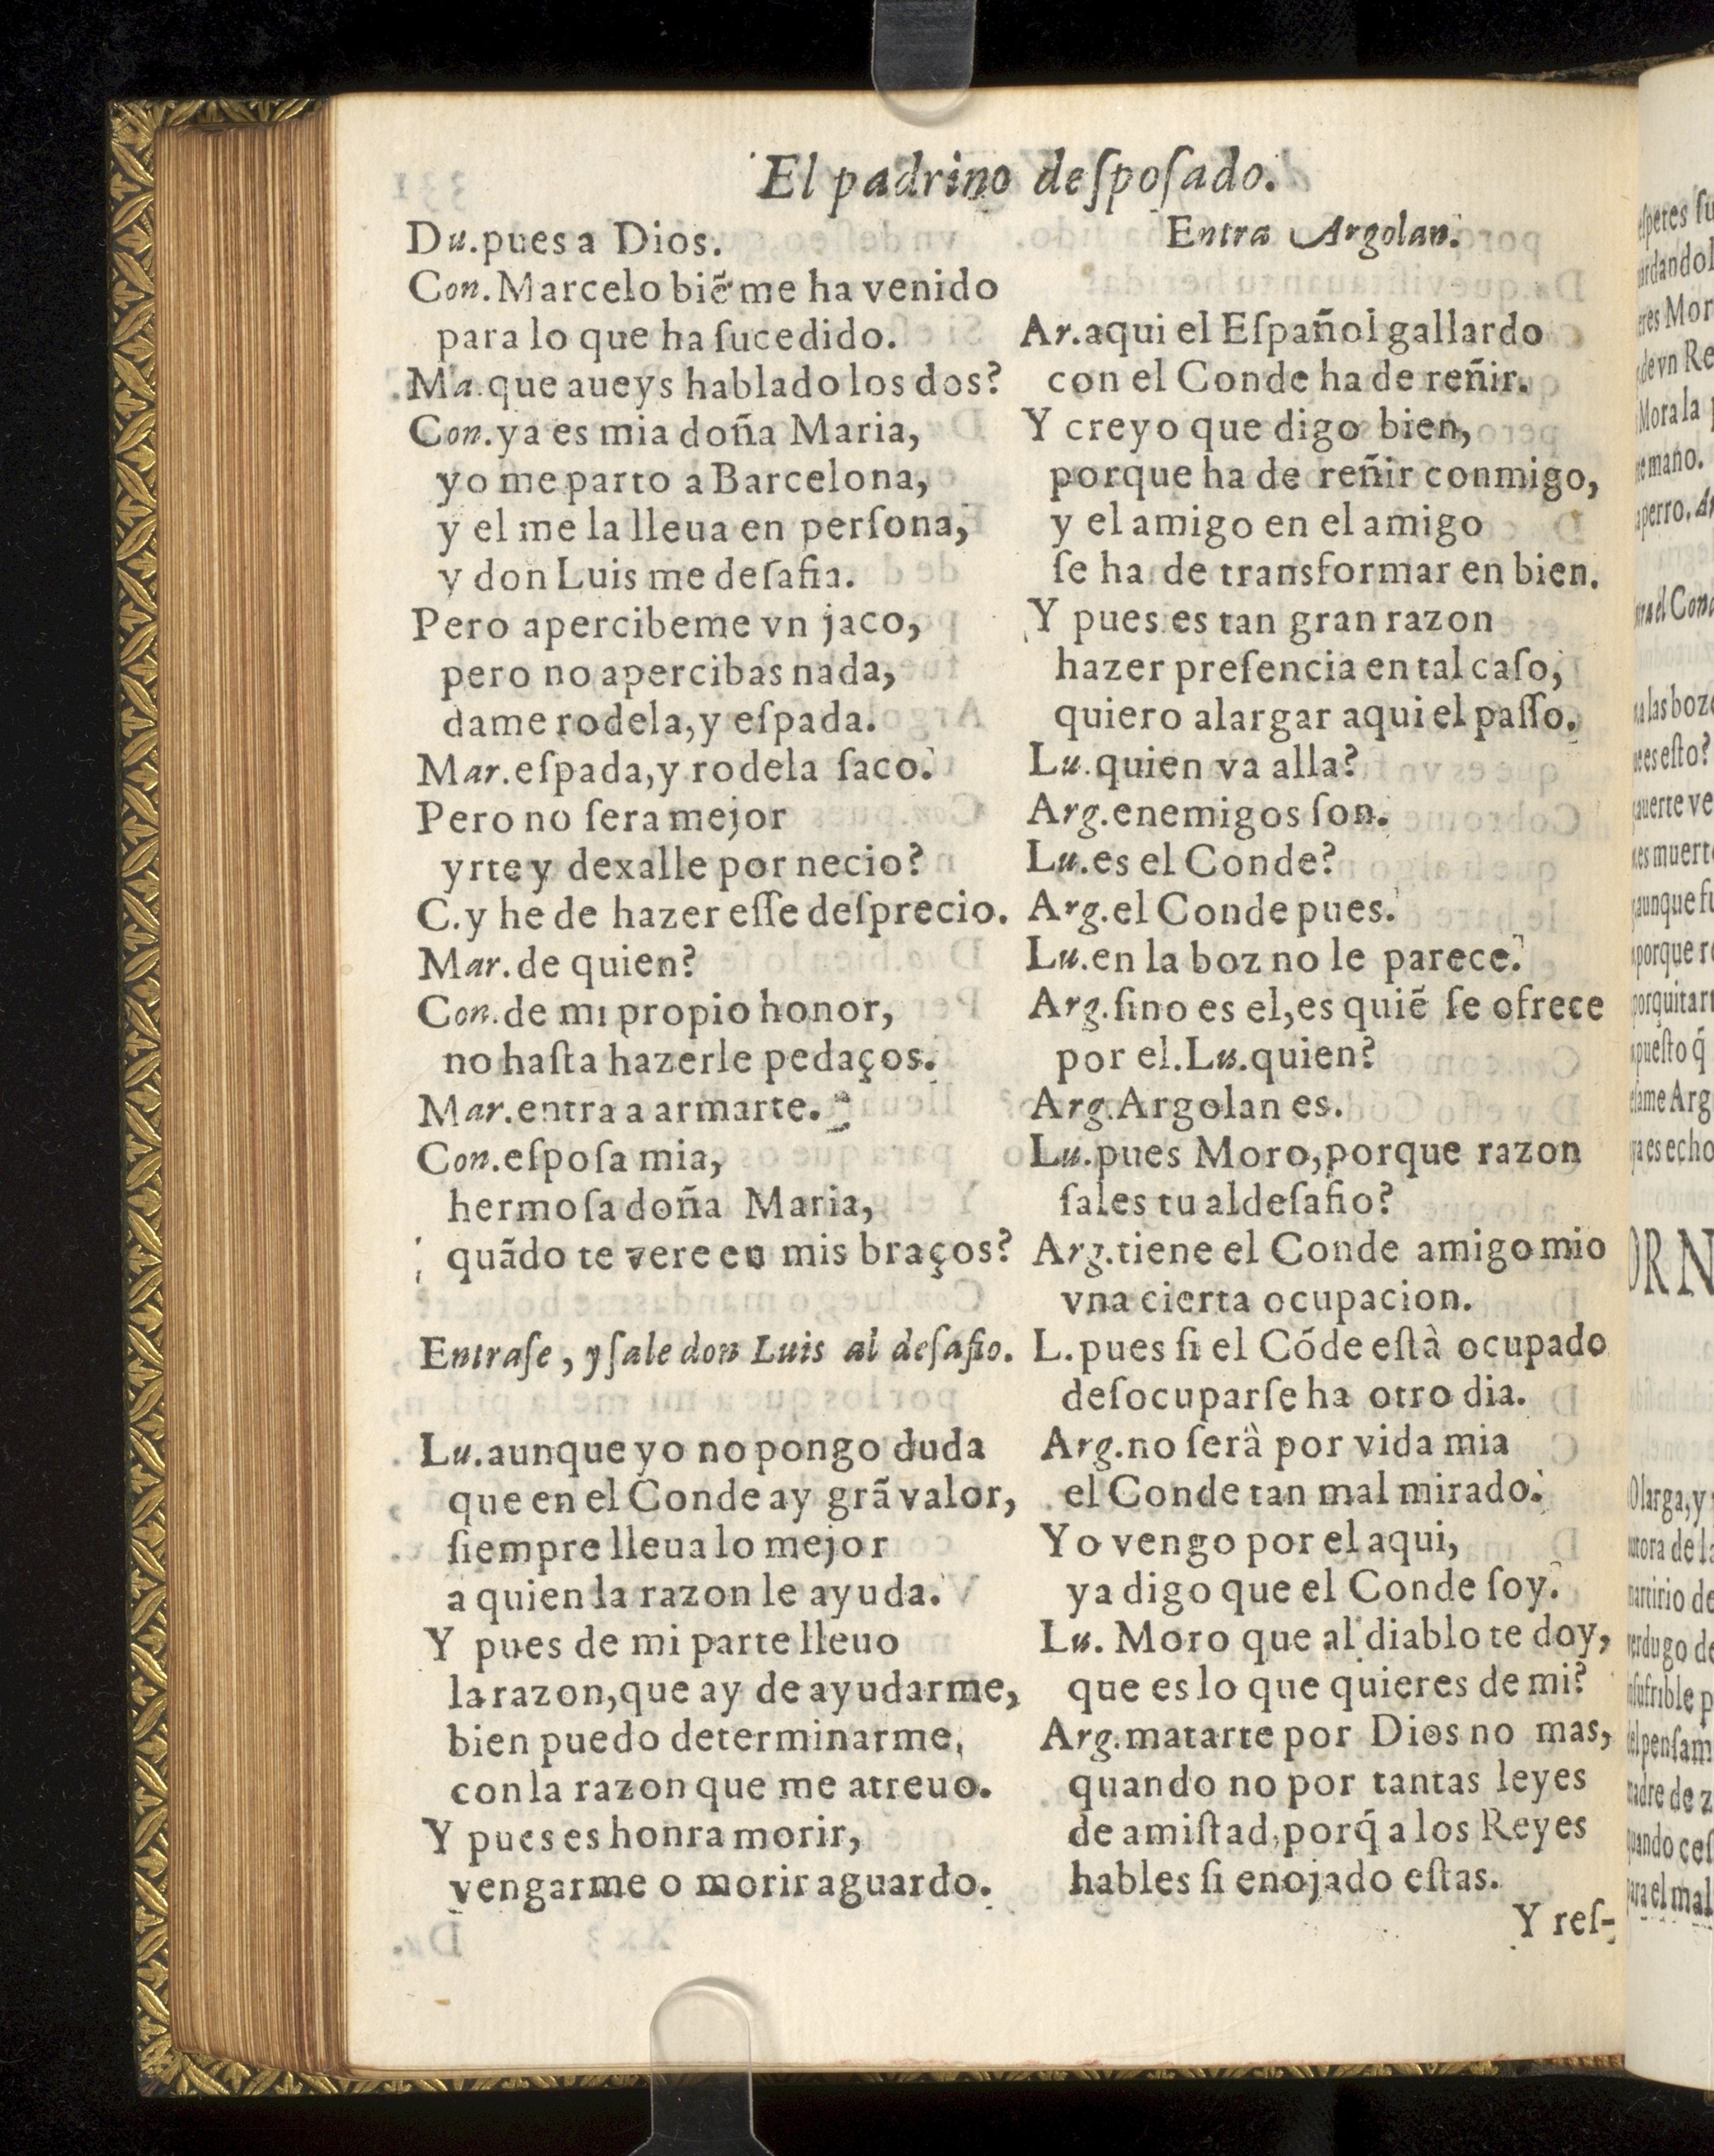 El padrino deſpoſado.
Du.pues a Dios.
Con.Marcelo biẽ me ha venido
para lo que ha ſucedido.
Ma.que aueys hablado los dos?
Con.ya es mia doña Maria,
yo me parto a Barcelona,
y el me la lleua en perſona,
y don Luis me deſafia.
Pero apercibeme vn jaco,
pero no apercibas nada,
dame rodela,y eſpada.
Mar.eſpada,y rodela ſaco.
Pero no ſera mejor
yrte y dexalle por necio?
C.y he de hazer eſſe deſprecio.
Mar.de quien?
Con.de mi propio honor,
no haſta hazerle pedaços.
Mar.entra a armarte.
Con.eſpoſa mia,
hermoſa doña Maria,
quãdo te vere en mis braços?
Entraſe, y ſale don Luis al deſafio.
Lu.aunque yo no pongo duda
que en el Conde ay grã valor,
ſiempre lleua lo mejor
a quien la razon le ayuda.
Y pues de mi parte lleuo
la razon,que ay de ayudarme,
bien puedo determinarme,
con la razon que me atreuo.
Y pues es honra morir,
vengarme o morir aguardo.
Entra Argolan.
Ar.aqui el Eſpañol gallardo
con el Conde ha de reñir.
Y creyo que digo bien,
porque ha de reñir conmigo,
y el amigo en el amigo
ſe ha de transformar en bien.
Y pues es tan gran razon
hazer preſencia en tal caſo,
quiero alargar aqui el paſſo.
Lu.quien va alla?
Arg.enemigos ſon.
Lu.es el Conde?
Arg.el Conde pues.
Lu.en la boz no le parece.
Arg.ſino es el,es quiẽ ſe ofrece
por el.Lu.quien?
Arg.Argolan es.
Lu.pues Moro,porque razon
ſales tu al deſafio?
Arg.tiene el Conde amigo mio
vna cierta ocupacion.
L.pues ſi el Códe eſtà ocupado
deſocuparſe ha otro dia.
Arg.no ſerà por vida mia
el Conde tan mal mirado.
Yo vengo por el aqui,
ya digo que el Conde ſoy.
Lu. Moro que al diablo te doy,
que es lo que quieres de mi?
Arg.matarte por Dios no mas,
quando no por tantas leyes
de amiſtad,porq̃ a los Reyes
hables ſi enojado eſtas.
Y reſ-